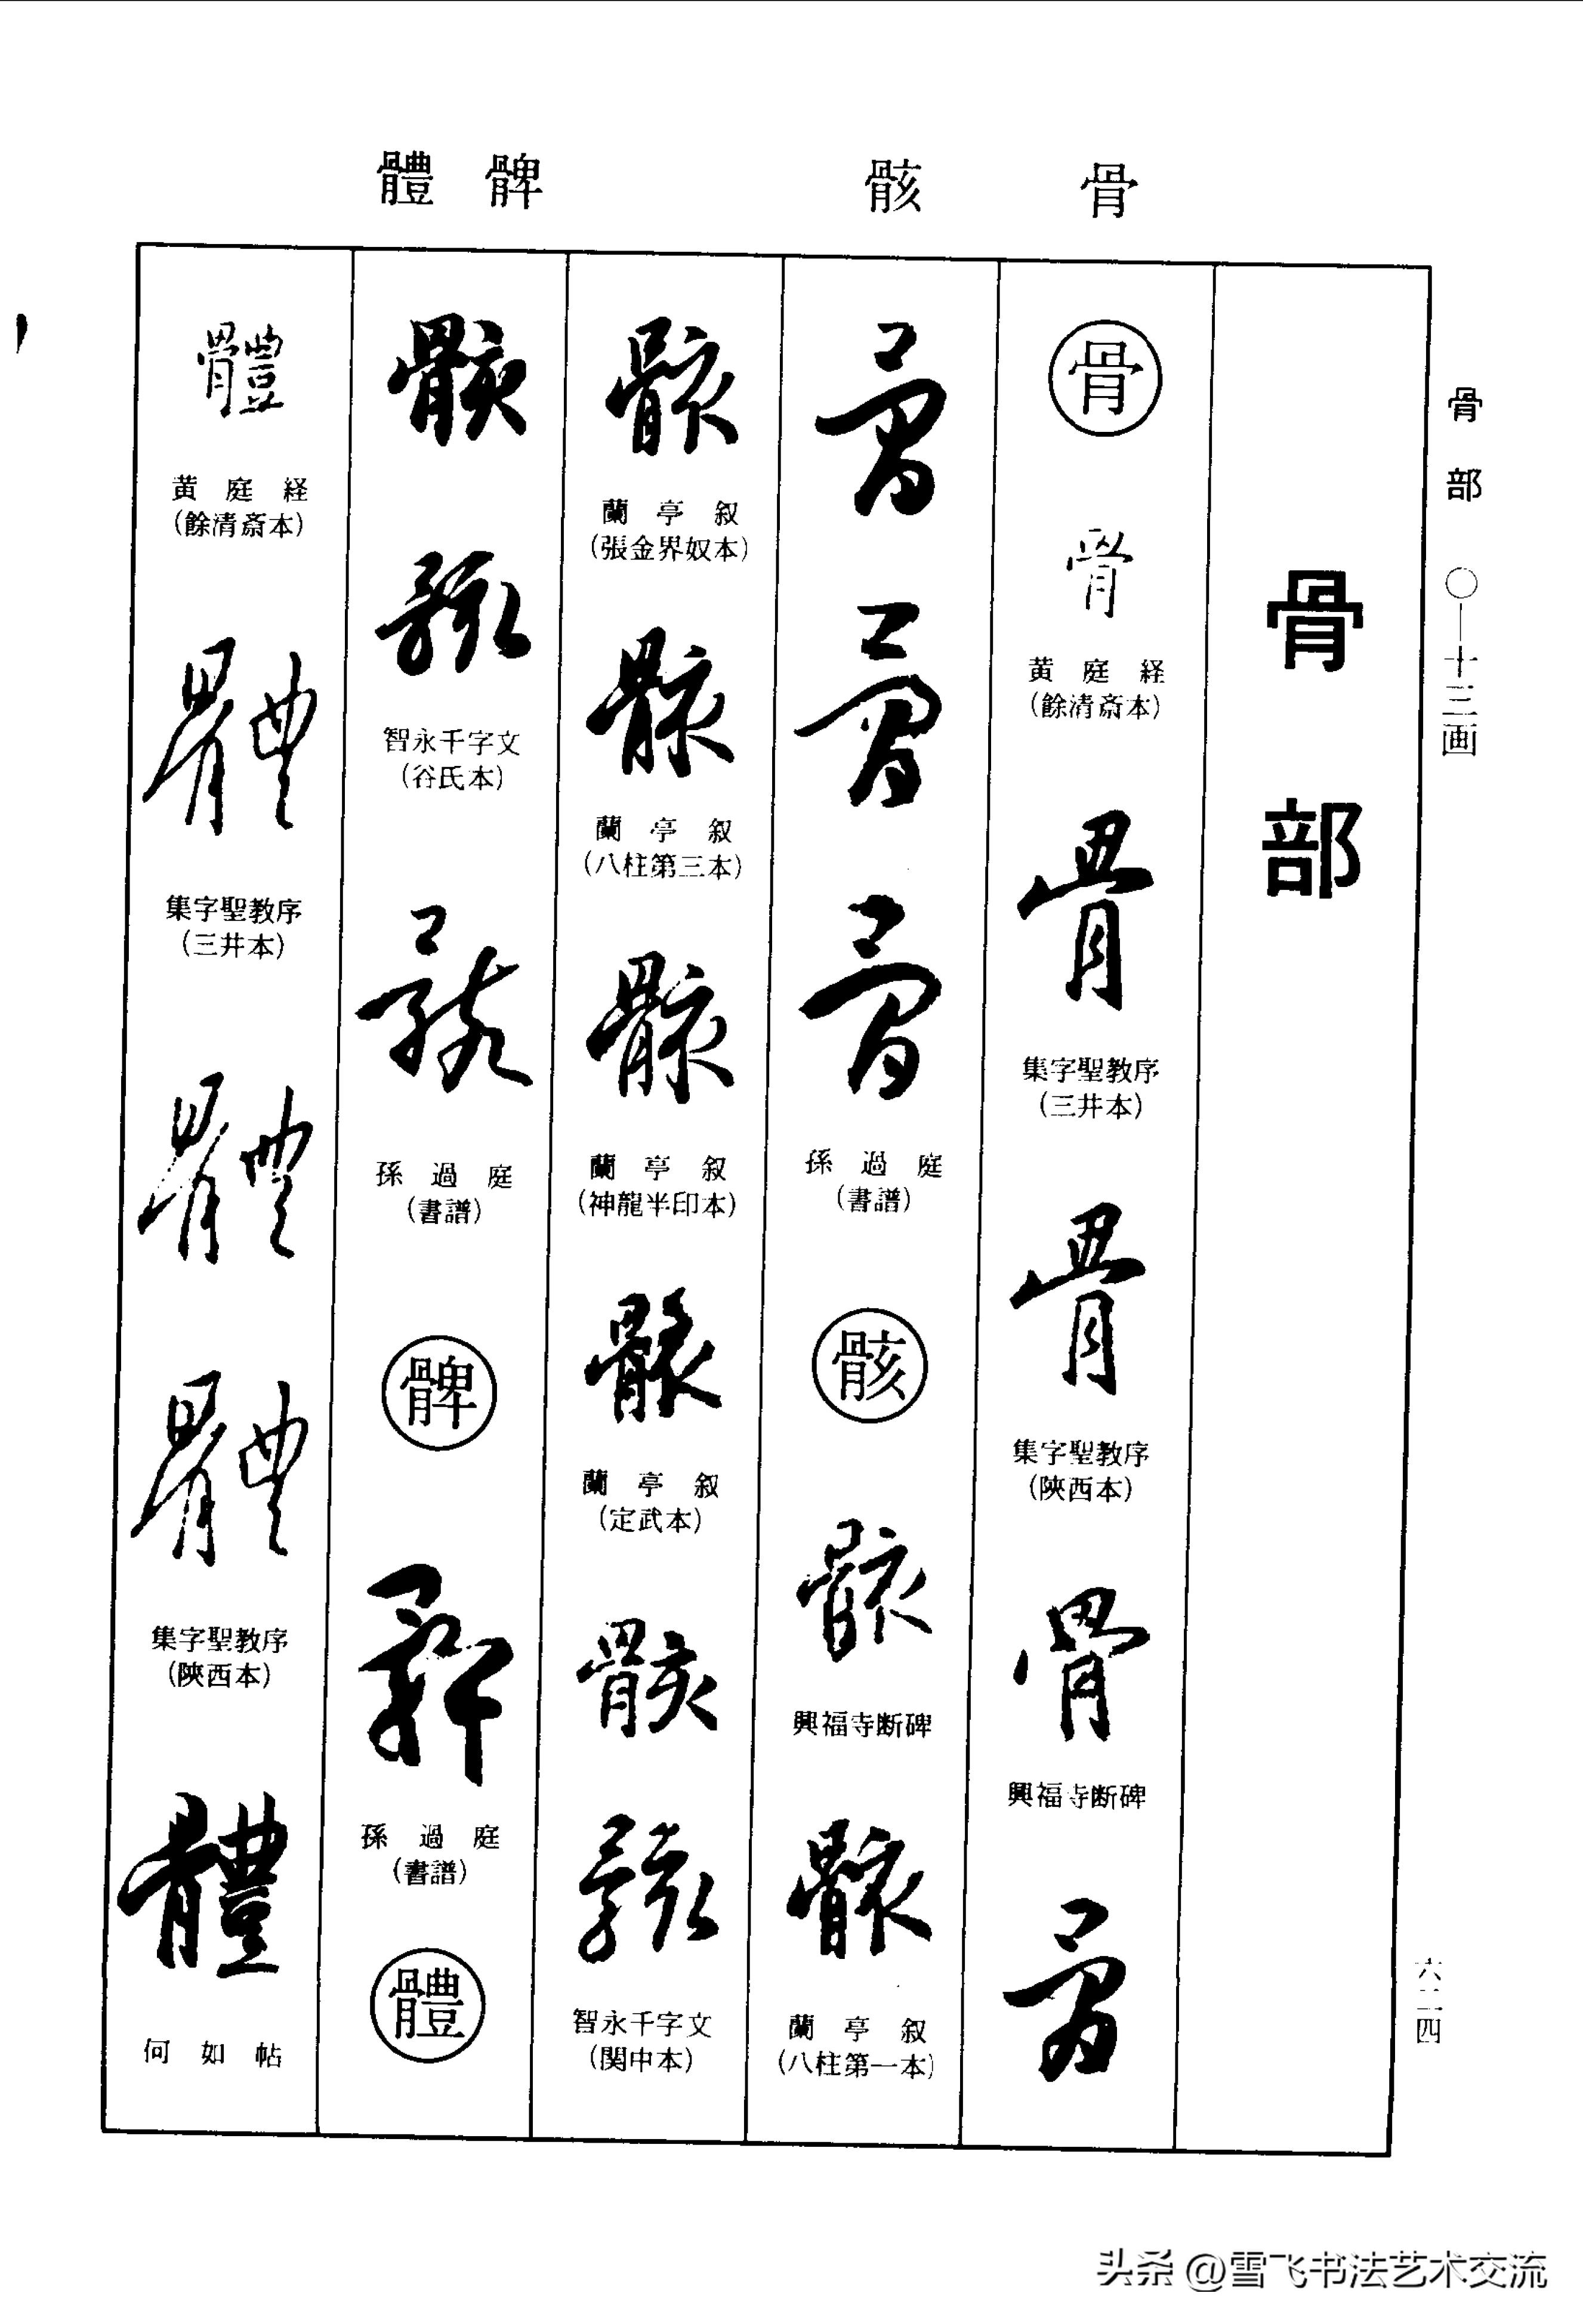 骨
骸
髀
體
骨部 〇—十三画
六二四
骨部
骨
骨
黄庭経
(餘清斎本)
骨
集字聖教序
(三井本)
骨
集字聖教序
(陝西本)
骨
興福寺断碑
骨
骨
骨
骨
孫過庭
(書譜)
骸
骸
興福寺断碑
骸
蘭亭叙
(八柱第一本)
骸
蘭亭叙
(張金界奴本)
骸
蘭亭叙
(八柱第三本)
骸
蘭亭叙
(神龍半印本)
骸
蘭亭叙
(定武本)
骸
骸
智永千字文
(関中本)
骸
骸
智永千字文
(谷氏本)
骸
孫過庭
(書譜)
髀
髀
孫過庭
(書譜)
體
體
黄庭経
(餘清斎本)
體
集字聖教序
(三井本)
體
體
集字聖教序
(陝西本)
體
何如帖
头条 @雪飞书法艺术交流